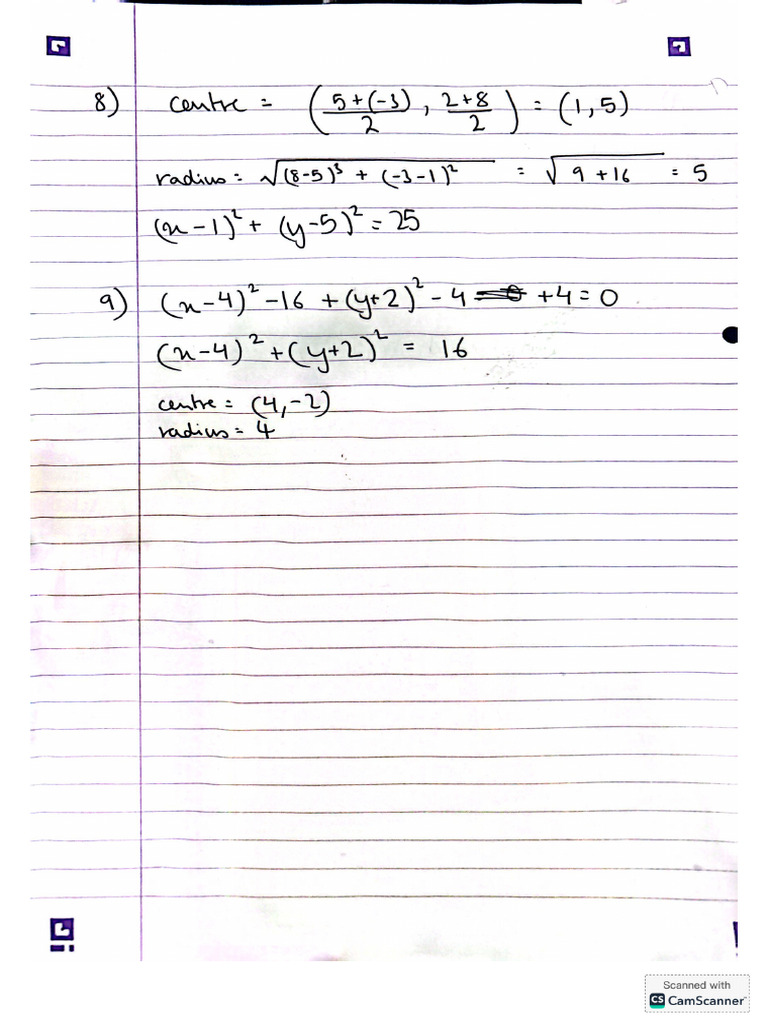 8) centre = (5+(-3)/2, 2+8/2) = (1,5)
radius = √((8-5)³ + (-3-1)²) = √(9+16) = 5
(x-1)² + (y-5)² = 25
9) (x-4)² -16 + (y+2)² - 4 +4 = 0
(x-4)² + (y+2)² = 16
centre = (4,-2)
radius = 4
Scanned with
CS CamScanner